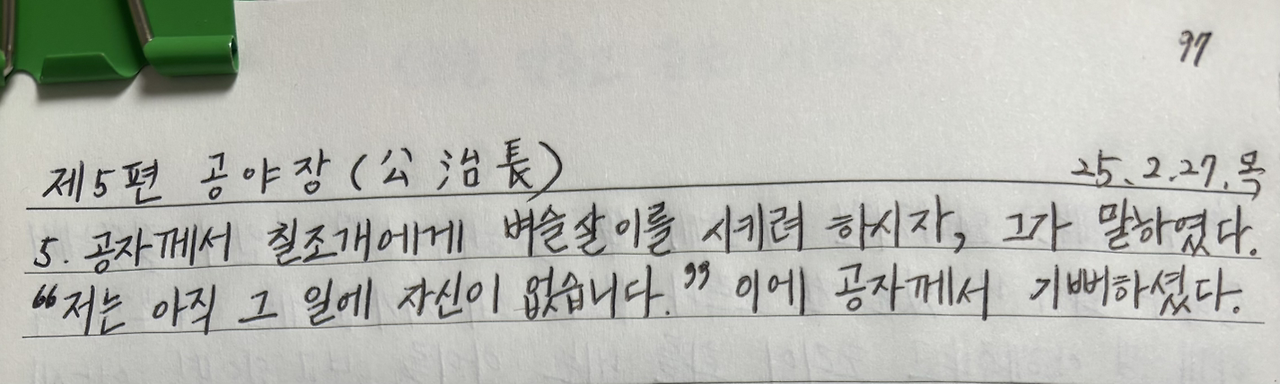 97
제5편 공야장(公治長) 25.2.27.목
5. 공자께서 칠조개에게 벼슬살이를 시키려 하시자, 그가 말하였다.
“저는 아직 그 일에 자신이 없습니다.” 이에 공자께서 기뻐하셨다.